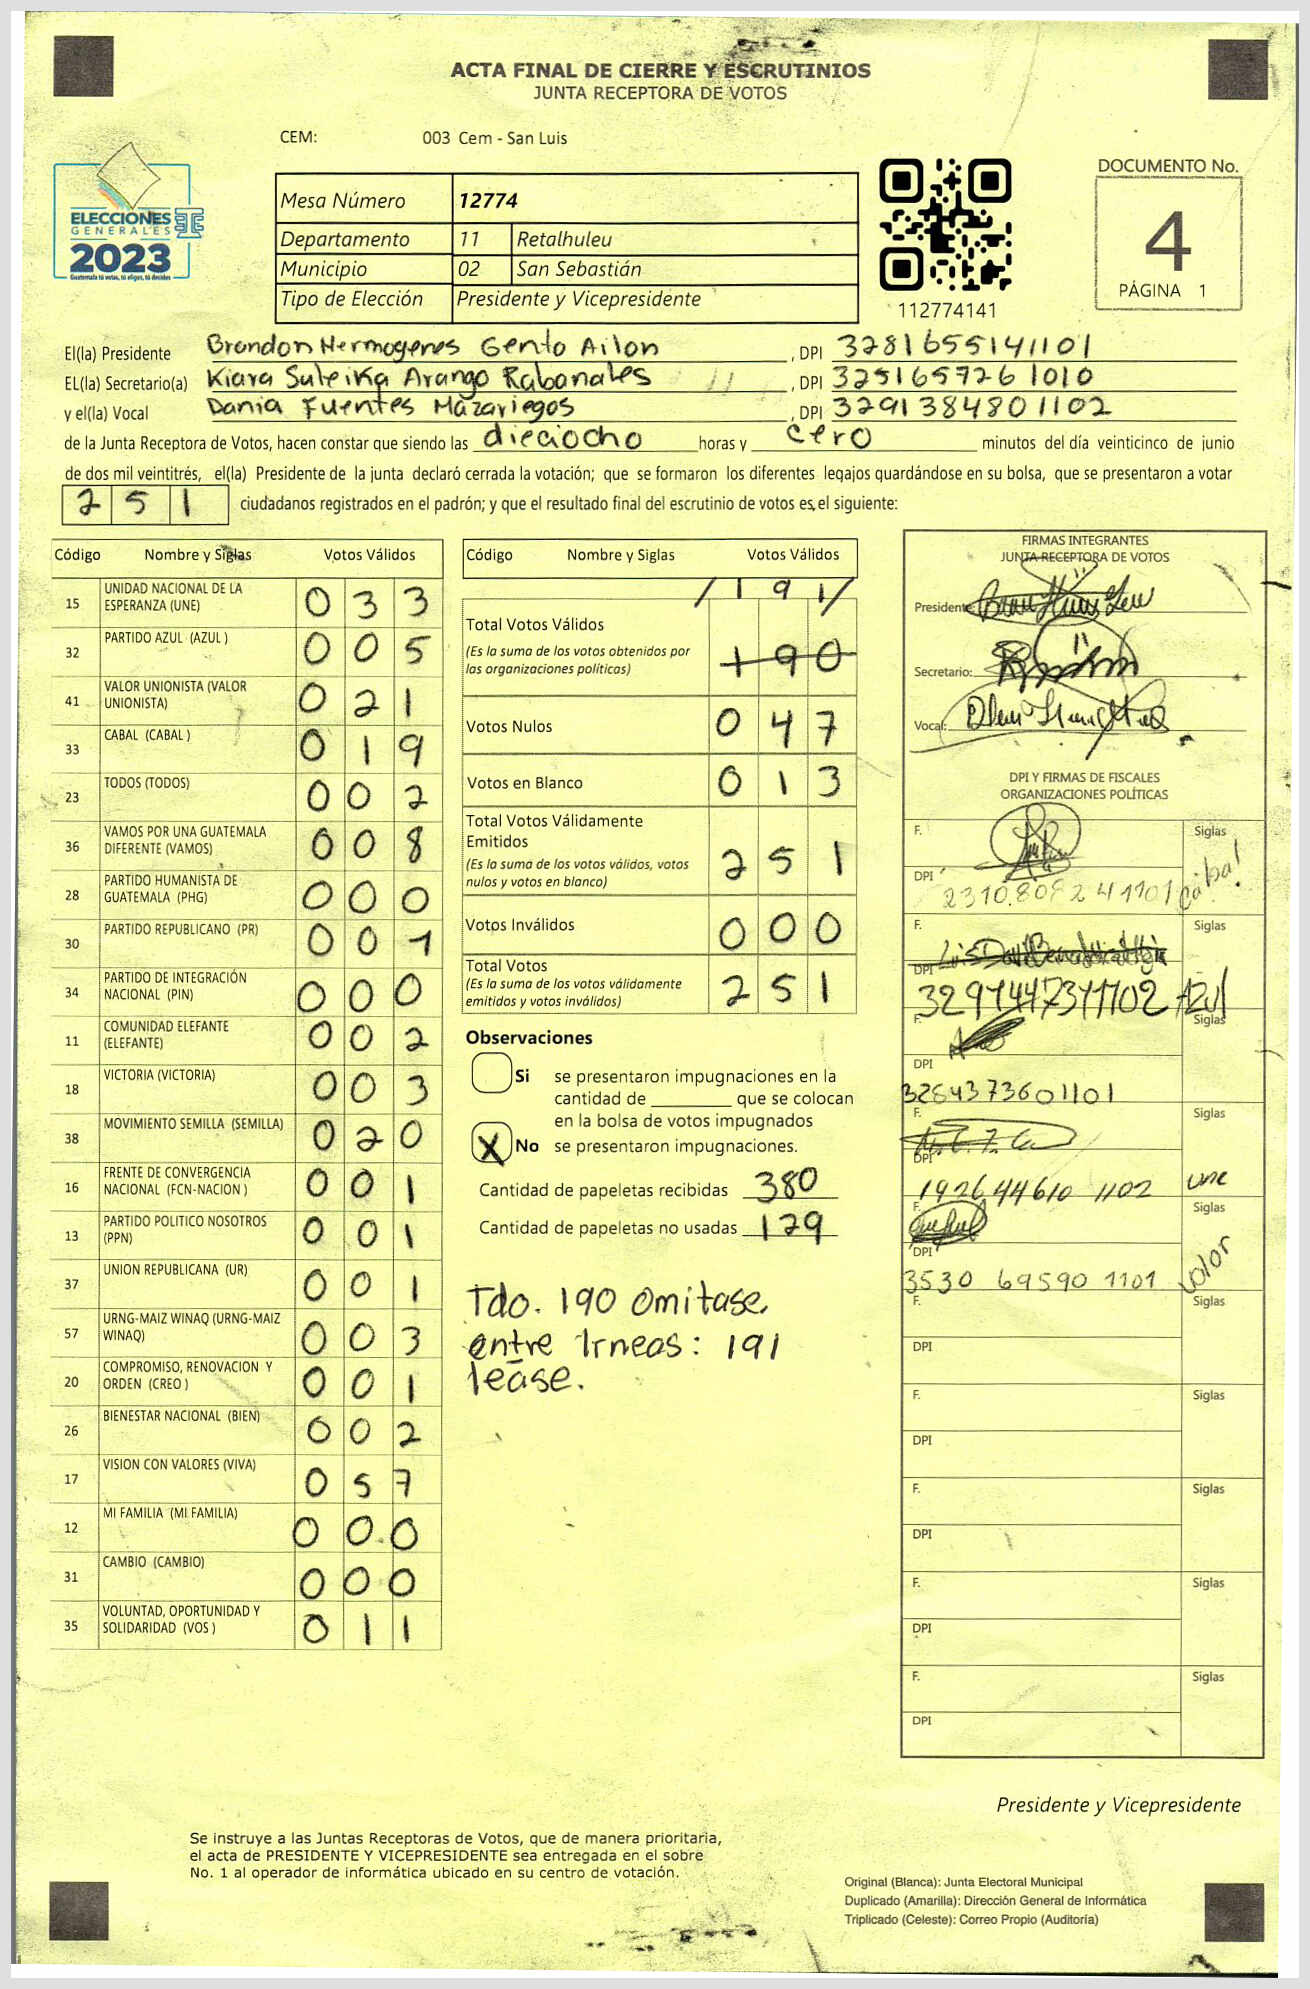 ACTA FINAL DE CIERRE Y ESCRUTINIOS
JUNTA RECEPTORA DE VOTOS
CEM: 003 Cem - San Luis
ELECCIONES
GENERALES
2023
Guatemala tú votas, tú eliges, tú decides
Mesa Número 12774
Departamento 11 Retalhuleu
Municipio 02 San Sebastián
Tipo de Elección Presidente y Vicepresidente
112774141
DOCUMENTO No.
4
PÁGINA 1
El(la) Presidente Brandon Hermogenes Gento Ailon, DPI 3281655141101
EL(la) Secretario(a) Kiara Suleika Arango Rabanales, DPI 3251657261010
y el(la) Vocal Dania Fuentes Mazariegos, DPI 3291384801102
de la Junta Receptora de Votos, hacen constar que siendo las dieciocho horas y cero minutos del día veinticinco de junio
de dos mil veintitrés, el(la) Presidente de la junta declaró cerrada la votación; que se formaron los diferentes legajos guardándose en su bolsa, que se presentaron a votar
251 ciudadanos registrados en el padrón; y que el resultado final del escrutinio de votos es el siguiente:
Código Nombre y Siglas Votos Válidos
15 UNIDAD NACIONAL DE LA ESPERANZA (UNE) 033
32 PARTIDO AZUL (AZUL ) 005
41 VALOR UNIONISTA (VALOR UNIONISTA) 021
33 CABAL (CABAL ) 019
23 TODOS (TODOS) 002
36 VAMOS POR UNA GUATEMALA DIFERENTE (VAMOS) 008
28 PARTIDO HUMANISTA DE GUATEMALA (PHG) 000
30 PARTIDO REPUBLICANO (PR) 001
34 PARTIDO DE INTEGRACIÓN NACIONAL (PIN) 000
11 COMUNIDAD ELEFANTE (ELEFANTE) 002
18 VICTORIA (VICTORIA) 003
38 MOVIMIENTO SEMILLA (SEMILLA) 020
16 FRENTE DE CONVERGENCIA NACIONAL (FCN-NACION ) 001
13 PARTIDO POLITICO NOSOTROS (PPN) 001
37 UNION REPUBLICANA (UR) 001
57 URNG-MAIZ WINAQ (URNG-MAIZ WINAQ) 003
20 COMPROMISO, RENOVACION Y ORDEN (CREO ) 001
26 BIENESTAR NACIONAL (BIEN) 002
17 VISION CON VALORES (VIVA) 057
12 MI FAMILIA (MI FAMILIA) 000
31 CAMBIO (CAMBIO) 000
35 VOLUNTAD, OPORTUNIDAD Y SOLIDARIDAD (VOS ) 011
Código Nombre y Siglas Votos Válidos
/191/
Total Votos Válidos
(Es la suma de los votos obtenidos por las organizaciones políticas) 190
Votos Nulos 047
Votos en Blanco 013
Total Votos Válidamente Emitidos
(Es la suma de los votos válidos, votos nulos y votos en blanco) 251
Votos Inválidos 000
Total Votos
(Es la suma de los votos válidamente emitidos y votos inválidos) 251
Observaciones
Si se presentaron impugnaciones en la
cantidad de ________ que se colocan
en la bolsa de votos impugnados
X No se presentaron impugnaciones.
Cantidad de papeletas recibidas 380
Cantidad de papeletas no usadas 129
Tdo. 190 Omitase.
entre lineas: 191
léase.
FIRMAS INTEGRANTES
JUNTA RECEPTORA DE VOTOS
Presidente:
Secretario:
Vocal:
DPI Y FIRMAS DE FISCALES
ORGANIZACIONES POLÍTICAS
F. Siglas
DPI 2310.808241101 Cabal
F. Siglas
DPI 3291447311102 AZUL
F. Siglas
DPI
3284373601101
F. Siglas
DPI
192644610 1102 une
F. Siglas
DPI
3530 69590 1101 valor
F. Siglas
DPI
F. Siglas
DPI
F. Siglas
DPI
F. Siglas
DPI
F. Siglas
DPI
Presidente y Vicepresidente
Se instruye a las Juntas Receptoras de Votos, que de manera prioritaria,
el acta de PRESIDENTE Y VICEPRESIDENTE sea entregada en el sobre
No. 1 al operador de informática ubicado en su centro de votación.
Original (Blanca): Junta Electoral Municipal
Duplicado (Amarilla): Dirección General de Informática
Triplicado (Celeste): Correo Propio (Auditoría)